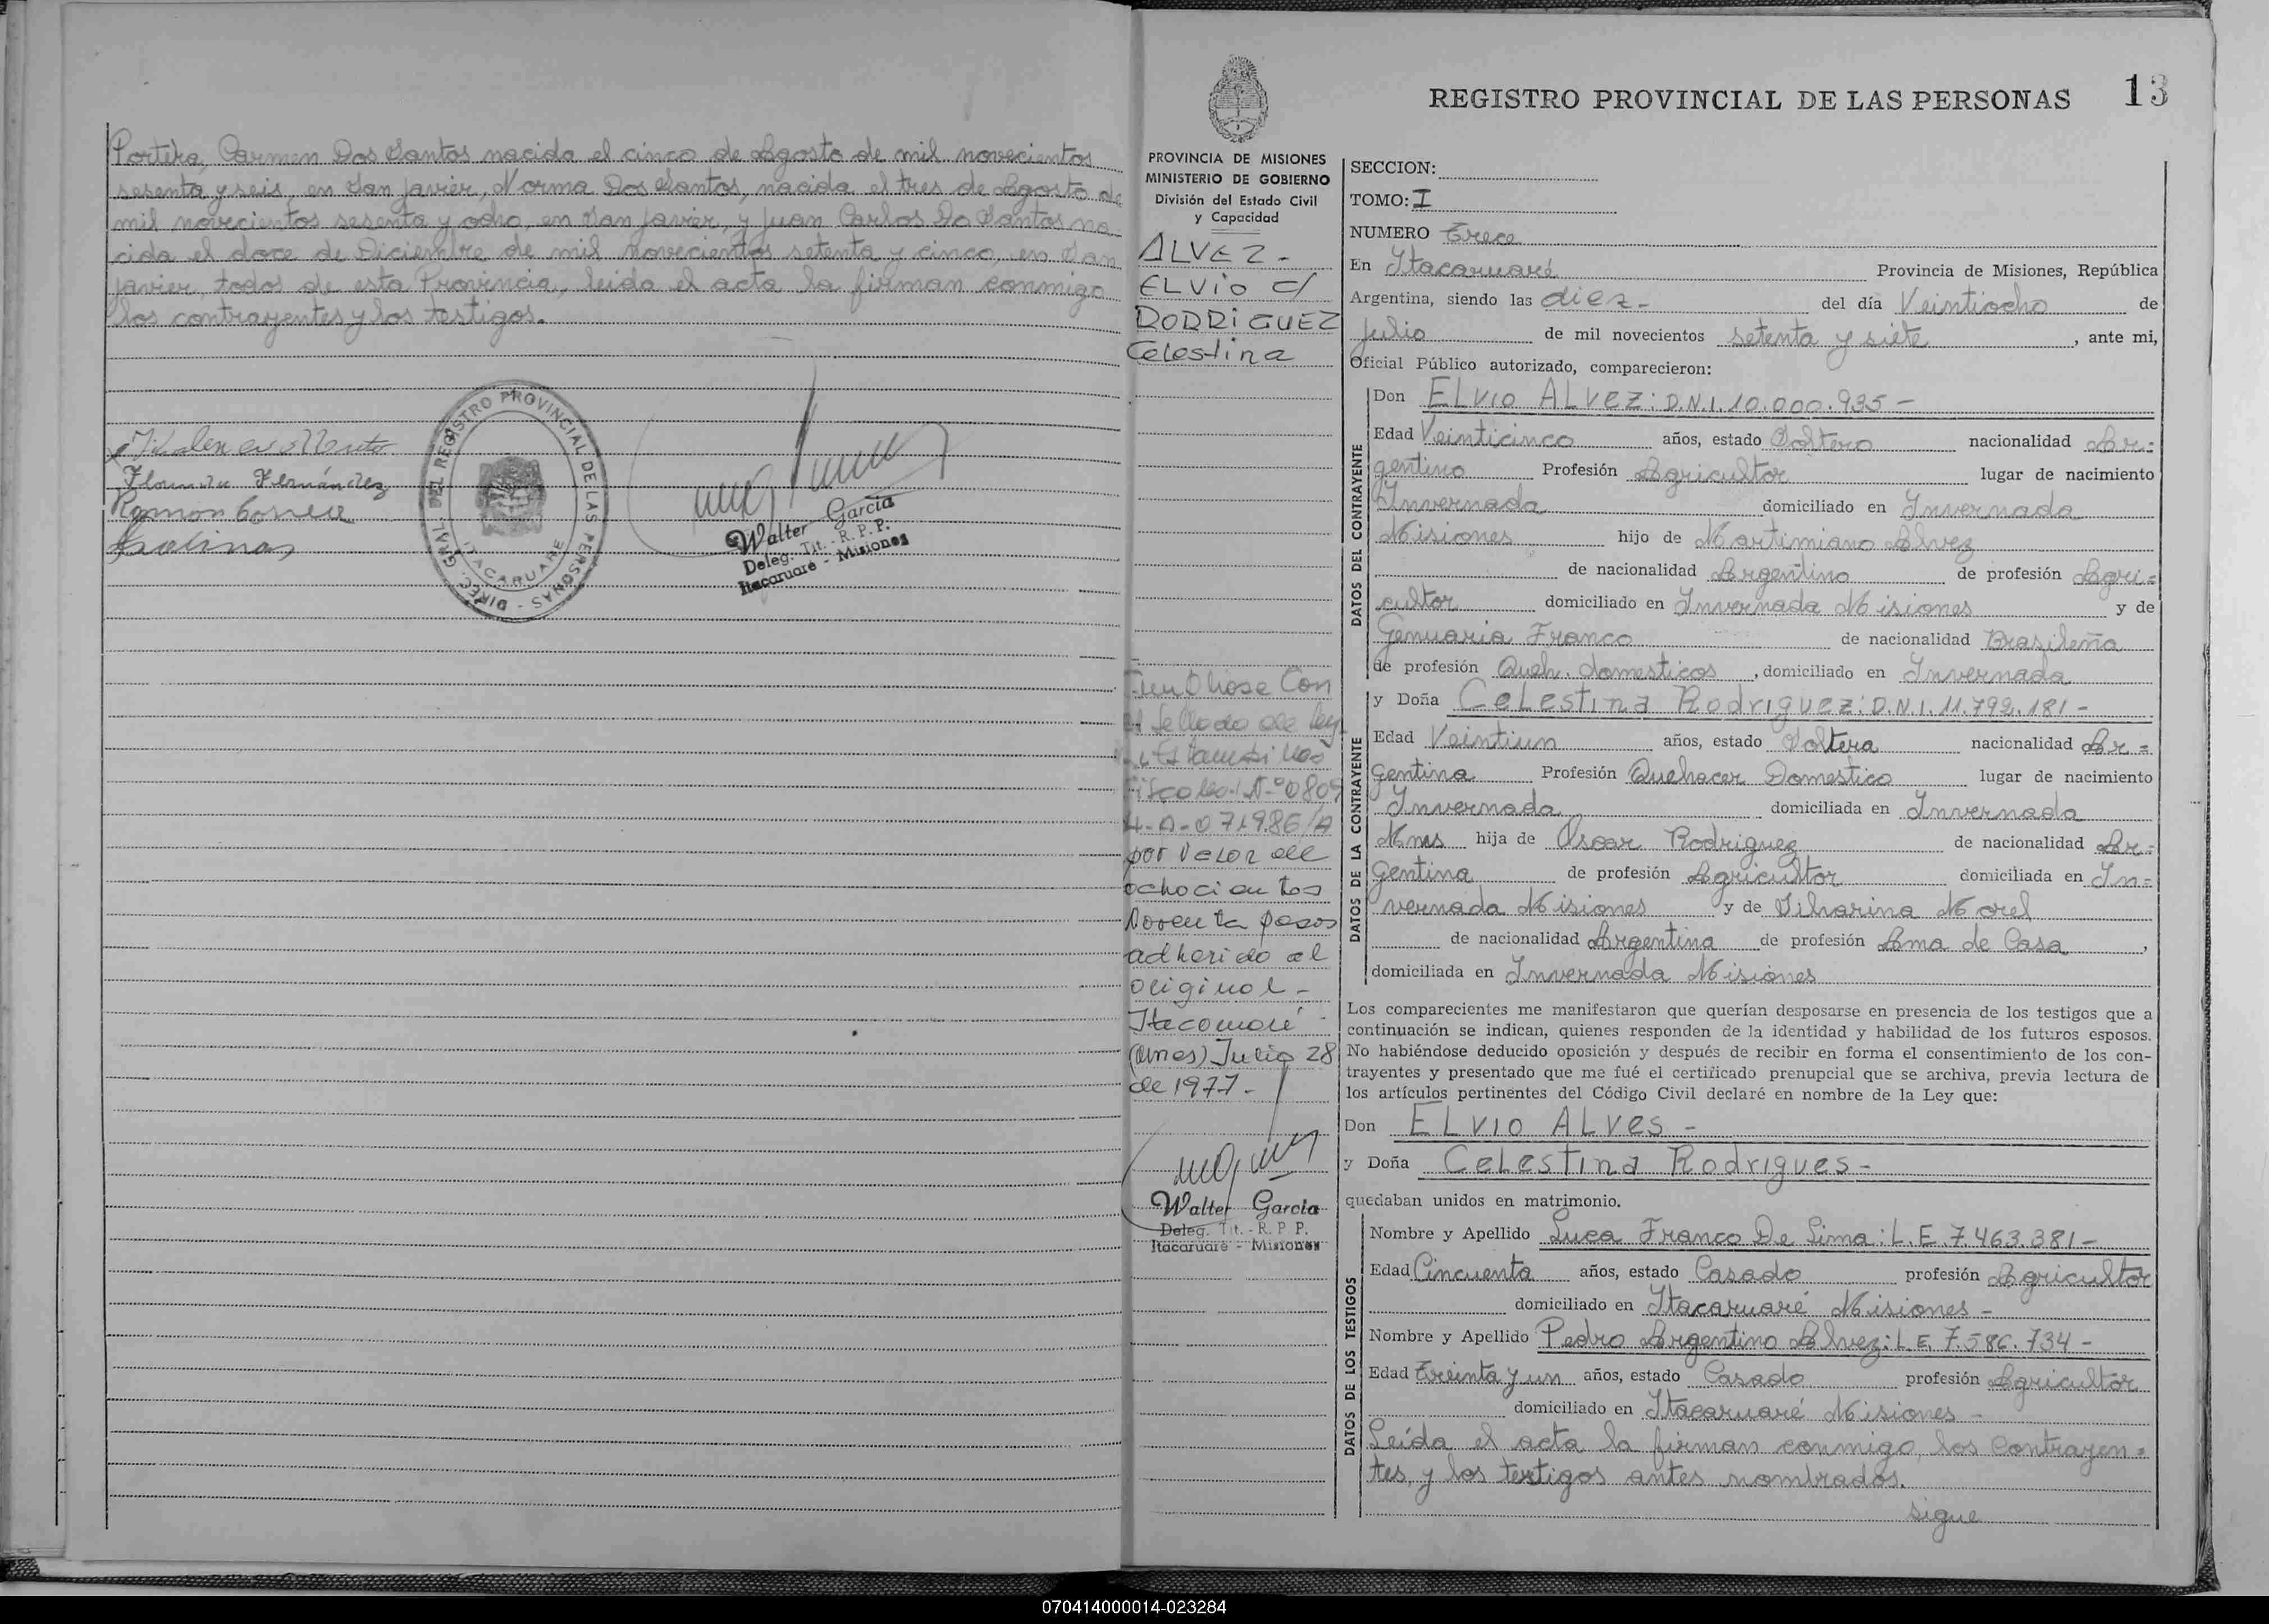 Portera, Carmen Dos Santos nacida el cinco de Agosto de mil novecientos
sesenta y seis, en San Javier, Norma Dos Santos, nacida el tres de Agosto de
mil novecientos sesenta y ocho, en San Javier, y Juan Carlos Do Santos na-
cida el doce de Diciembre de mil novecientos setenta y cinco, en San
Javier, todos de esta Provincia, leida el acta la firman conmigo
los contrayentes y los testigos.
Fernández
Ramon
DIREC. GRAL. DEL REGISTRO PROVINCIAL DE LAS PERSONAS -
ITACARUARE
Walter García
Deleg. Tit. - R. P. P.
Itacaruaré - Misiones
REGISTRO PROVINCIAL DE LAS PERSONAS 13
PROVINCIA DE MISIONES
MINISTERIO DE GOBIERNO
División del Estado Civil
y Capacidad
ALVEZ -
ELVIO c/
RODRIGUEZ
Celestina
el Sellado de ley
por valor de
ochocientos
noventa pesos
adherido al
original -
Itacaruaré
(Mnes) Julio 28
de 1977 -
Walter García
Deleg. Tit. - R. P. P.
Itacaruaré - Misiones
SECCION:
TOMO: I
NUMERO Trece
En Itacaruaré Provincia de Misiones, República
Argentina, siendo las diez - del día Veintiocho de
Julio de mil novecientos setenta y siete, ante mi,
Oficial Público autorizado, comparecieron:
DATOS DEL CONTRAYENTE
Don ELVIO ALVEZ: D.N.I. 10.000.935 -
Edad Veinticinco años, estado Soltero nacionalidad Ar=
gentino Profesión Agricultor lugar de nacimiento
Invernada domiciliado en Invernada
Misiones hijo de Martimiano Alvez
de nacionalidad Argentino de profesión Agri=
cultor domiciliado en Invernada Misiones y de
Genuaria Franco de nacionalidad Brasileña
de profesión Queh. domesticos, domiciliado en Invernada
DATOS DE LA CONTRAYENTE
y Doña Celestina Rodriguez: D.N.I. 11.792.181 -
Edad Veintiun años, estado Soltera nacionalidad Ar=
gentina Profesión Quehacer Domestico lugar de nacimiento
Invernada domiciliada en Invernada
Mnes hija de Oscar Rodriguez de nacionalidad Ar=
gentina de profesión Agricultor domiciliada en In=
vernada Misiones y de Silvarina Morel
de nacionalidad Argentina de profesión Ama de Casa,
domiciliada en Invernada Misiones
Los comparecientes me manifestaron que querían desposarse en presencia de los testigos que a
continuación se indican, quienes responden de la identidad y habilidad de los futuros esposos.
No habiéndose deducido oposición y después de recibir en forma el consentimiento de los con-
trayentes y presentado que me fué el certificado prenupcial que se archiva, previa lectura de
los artículos pertinentes del Código Civil declaré en nombre de la Ley que:
Don ELVIO ALVES -
y Doña Celestina Rodrigues -
quedaban unidos en matrimonio.
DATOS DE LOS TESTIGOS
Nombre y Apellido Luca Franco De Lima: L.E. 7.463.381 -
Edad Cincuenta años, estado Casado profesión Agricultor
domiciliado en Itacaruaré Misiones -
Nombre y Apellido Pedro Argentino Alvez: L.E. 7.586.734 -
Edad Treinta y un años, estado Casado profesión Agricultor
domiciliado en Itacaruaré Misiones -
Leída el acta la firman conmigo, los contrayen=
tes, y los testigos antes nombrados.
sigue
070414000014-023284